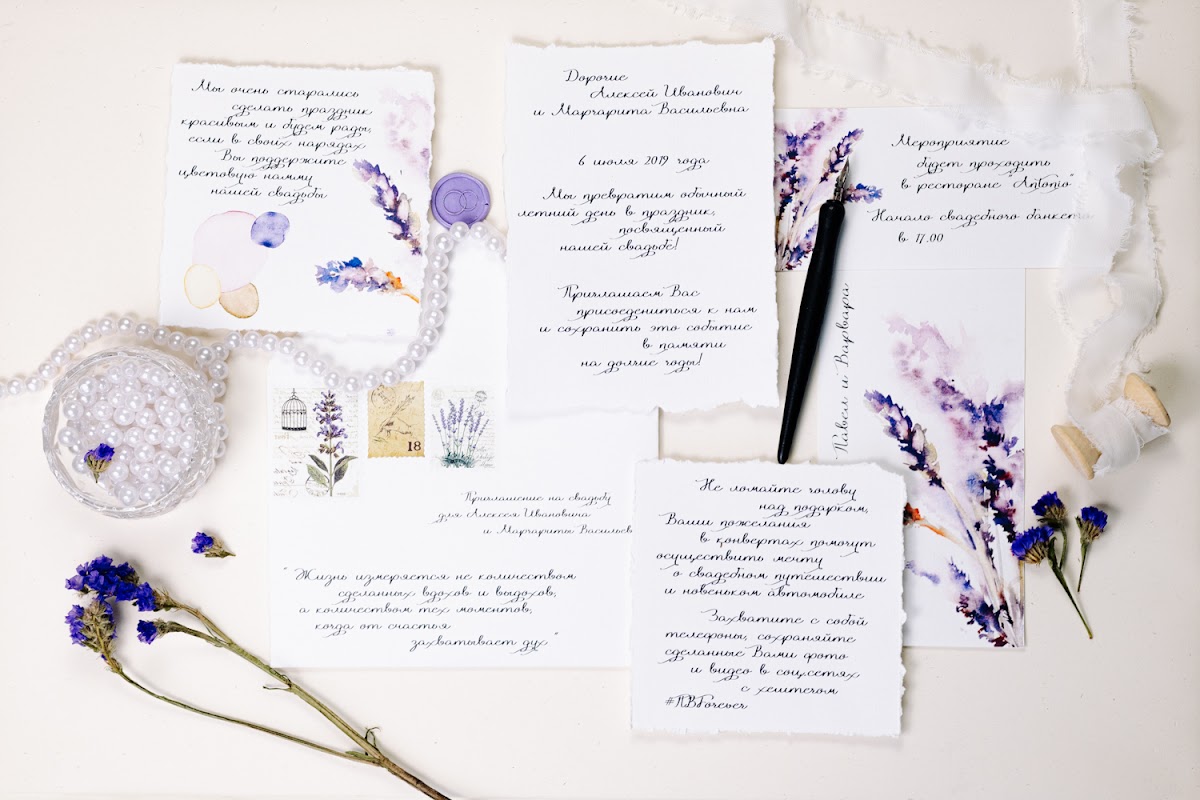 Мы очень старались
сделать праздник
красивым и будем рады,
если в своих нарядах
Вы поддержите
цветовую гамму
нашей свадьбы
Дорогие
Алексей Иванович
и Маргарита Васильевна
6 июля 2019 года
Мы превратим обычный
летний день в праздник,
посвященный
нашей свадьбе!
Приглашаем Вас
присоединиться к нам
и сохранить это событие
в памяти
на долгие годы!
Мероприятие
будет проходить
в ресторане "Antonio"
Начало свадебного банкета
в 17.00
Павел и Варвара
18
Приглашение на свадьбу
для Алексея Ивановича
и Маргариты Васильев
"Жизнь измеряется не количеством
сделанных вдохов и выдохов,
а количеством тех моментов,
когда от счастья
захватывает дух"
Не ломайте голову
над подарком,
Ваши пожелания
в конвертах помогут
осуществить мечту
о свадебном путешествии
и новеньком автомобиле
Захватите с собой
телефоны, сохраняйте
сделанные Вами фото
и видео в соц.сетях
с хештегом
#ПВForever